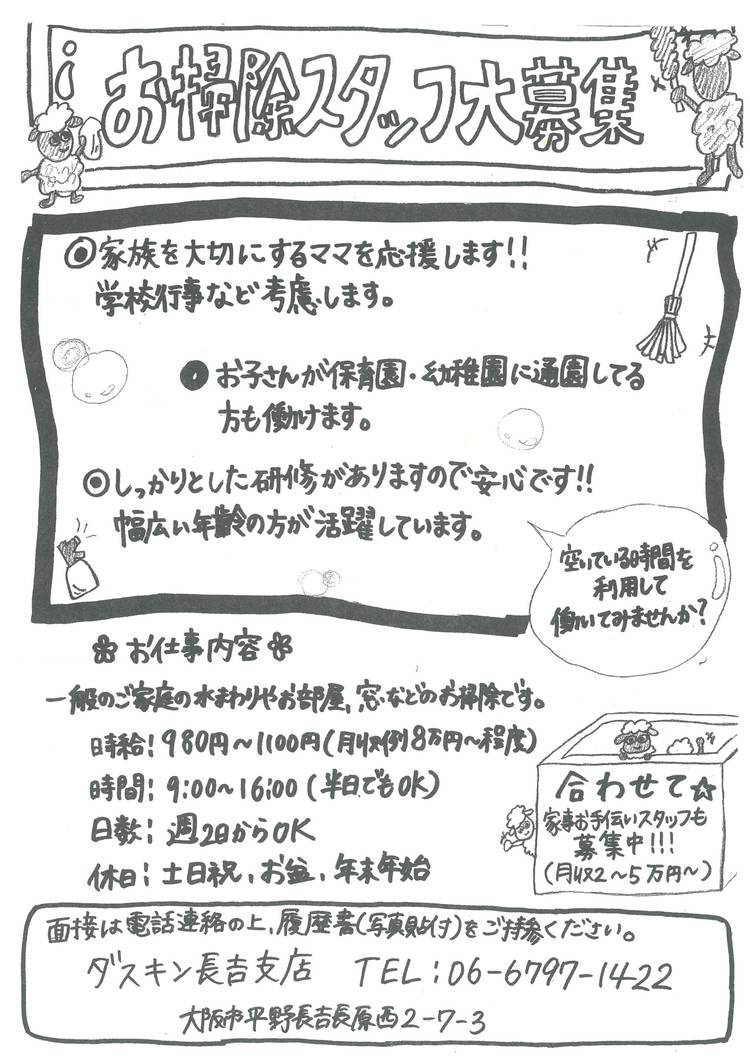 お掃除スタッフ大募集
◎家族を大切にするママを応援します!!
学校行事など考慮します。
◎お子さんが保育園・幼稚園に通園してる
方も働けます。
◎しっかりとした研修がありますので安心です!!
幅広い年齢の方が活躍しています。
空いている時間を
利用して
働いてみませんか?
お仕事内容
一般のご家庭の水まわりやお部屋、窓などのお掃除です。
時給:980円〜1100円(月収例8万円〜程度)
時間:9:00〜16:00(半日でもOK)
日数:週2日からOK
休日:土日祝、お盆、年末年始
合わせて☆
家事お手伝いスタッフも
募集中!!!
(月収2〜5万円〜)
面接は電話連絡の上、履歴書(写真貼付)をご持参ください。
ダスキン長吉支店 TEL:06-6797-1422
大阪市平野長吉長原西2-7-3